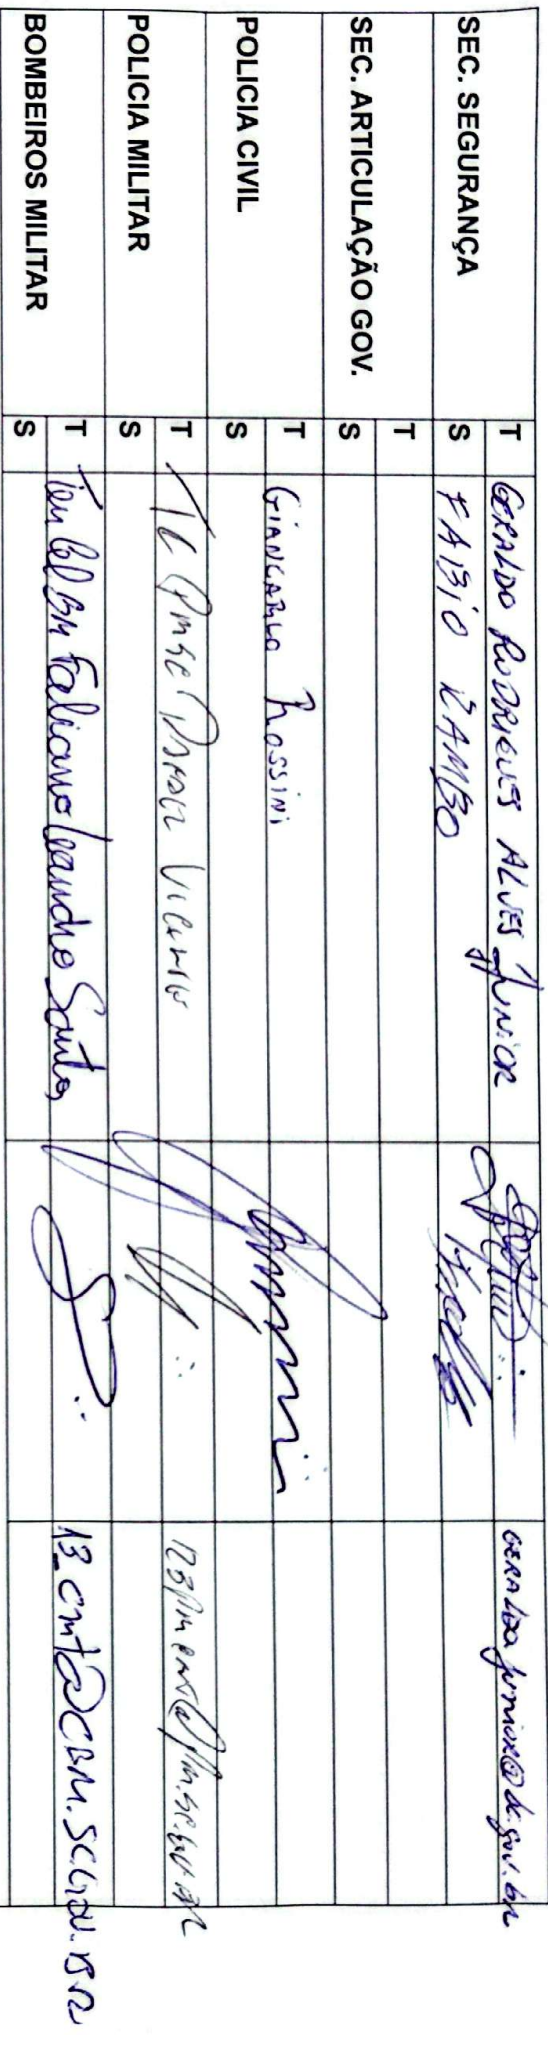 SEC. SEGURANÇA
T GERALDO RODRIGUES ALVES JUNIOR geraldojunior@dc.gov.br
S FABIO RAMBO
SEC. ARTICULAÇÃO GOV.
T
S
POLICIA CIVIL
T GIANCARLO ROSSINI
S
POLICIA MILITAR
T TC PMSC VICENTE
S
BOMBEIROS MILITAR
T Ten Cel BM Fabiano Leandro Santos 13_cmt@CBM.SC.GOV.BR
S